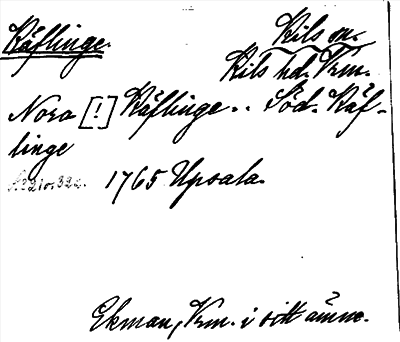 Käflinge.
Kils sn.
Kils hd. Vrm.
Nora [!] Käflinge .. Söd. Käf-
linge
1765 Upsala.
Ekman, Vrm. i sitt ämne.